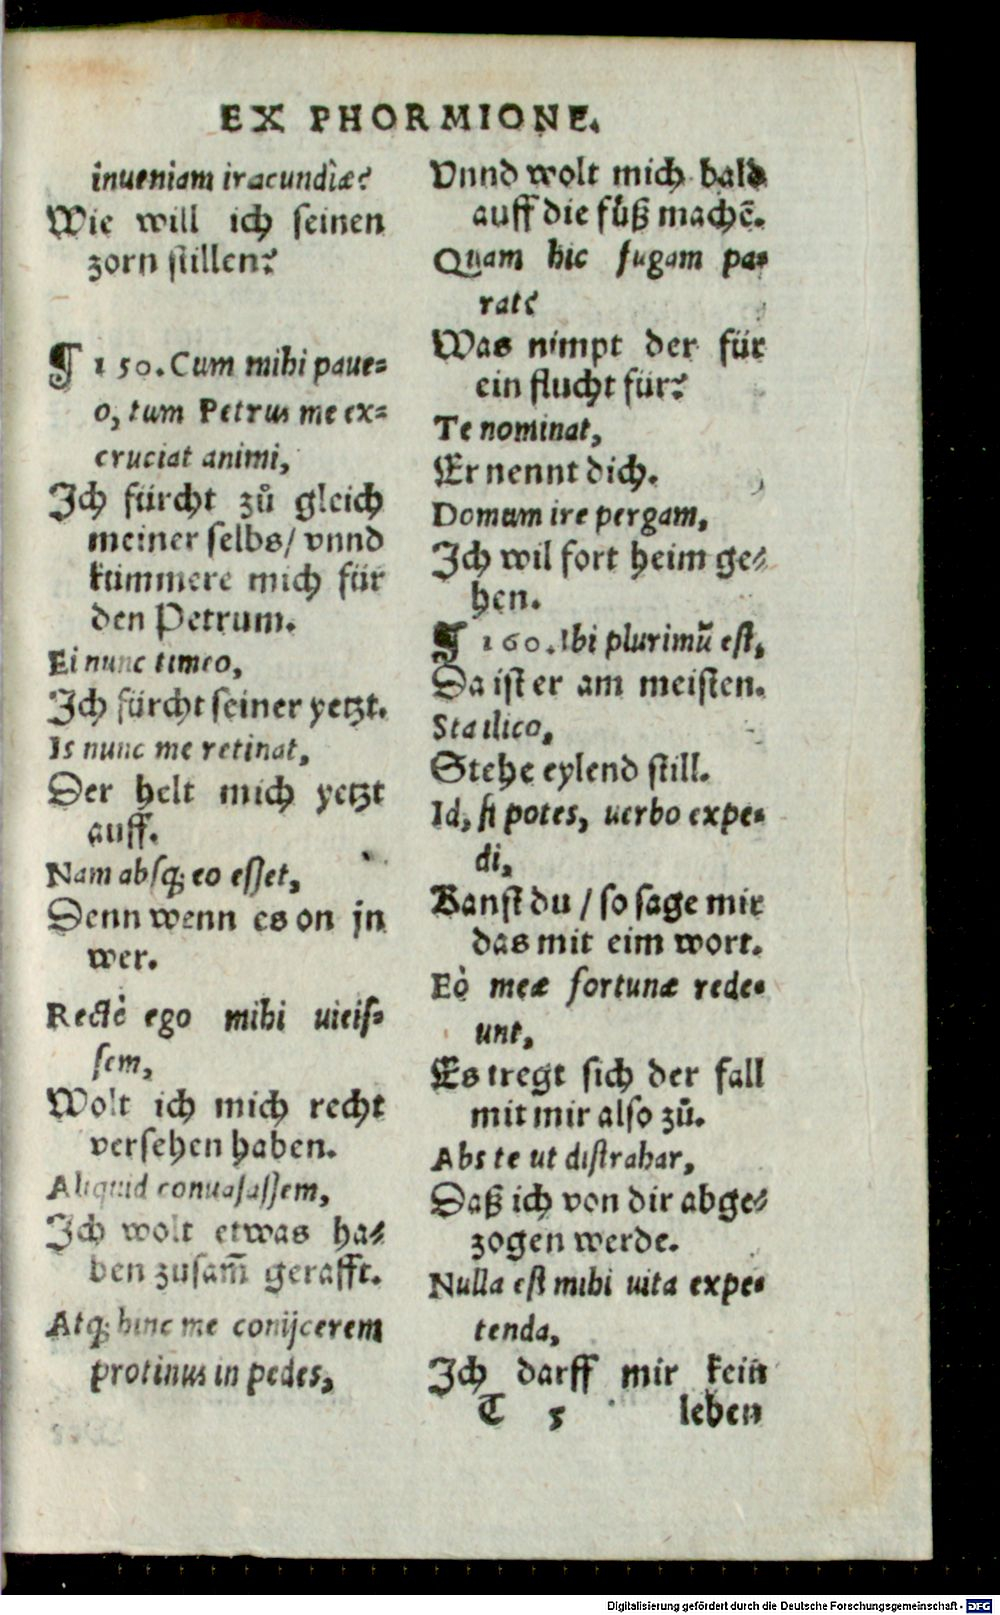 EX PHORMIONE.
inueniam iracundiæ?
Wie will ich seinen
zorn stillen?
¶ 150. Cum mihi paue-
o, tum Petrus me ex-
cruciat animi,
Ich fürcht zů gleich
meiner selbs/ vnnd
kümmere mich für
den Petrum.
Ei nunc timeo,
Ich fürcht seiner yetzt.
Is nunc me retinat,
Der helt mich yetzt
auff.
Nam absq; eo esset,
Denn wenn es on jn
wer.
Rectè ego mihi uidis-
sem,
Wolt ich mich recht
versehen haben.
Aliquid conuasassem,
Ich wolt etwas ha-
ben zusam̃ gerafft.
Atq; hinc me conijcerem
protinus in pedes,
Vnnd wolt mich bald
auff die fůß machẽ.
Quam hic fugam pa-
rat?
Was nimpt der für
ein flucht für?
Te nominat,
Er nennt dich.
Domum ire pergam,
Ich wil fort heim ge-
hen.
¶ 160. Ibi plurimũ est,
Da ist er am meisten.
Sta ilico,
Stehe eylend still.
Id, si potes, uerbo expe-
di,
Kanst du / so sage mir
das mit eim wort.
Eò meæ fortunæ rede-
unt,
Es tregt sich der fall
mit mir also zů.
Abs te ut distrahar,
Daß ich von dir abge-
zogen werde.
Nulla est mihi uita expe-
tenda,
Ich darff mir kein
T 5 leben
Digitalisierung gefördert durch die Deutsche Forschungsgemeinschaft - DFG